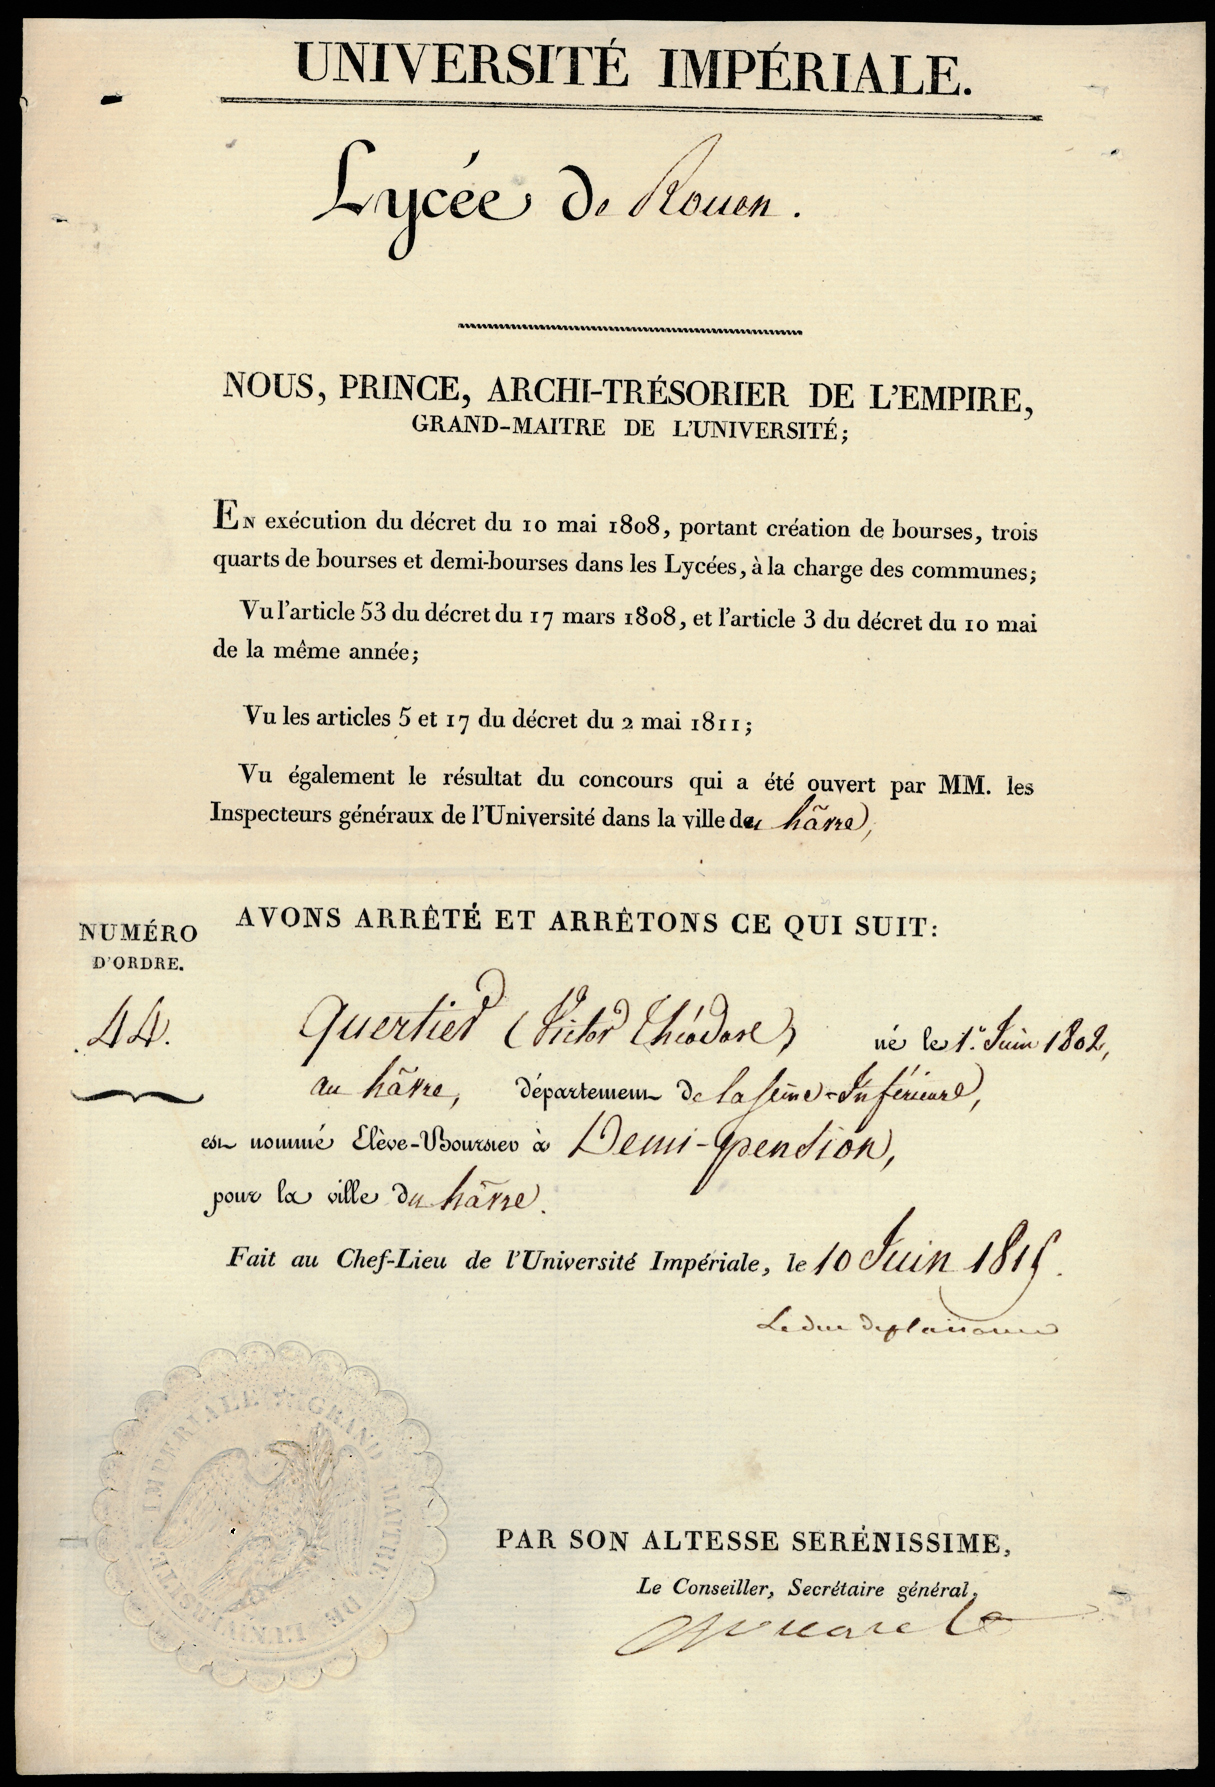 UNIVERSITÉ IMPÉRIALE.
Lycée de Rouen.
NOUS, PRINCE, ARCHI-TRÉSORIER DE L'EMPIRE,
GRAND-MAITRE DE L'UNIVERSITÉ;
EN exécution du décret du 10 mai 1808, portant création de bourses, trois
quarts de bourses et demi-bourses dans les Lycées, à la charge des communes;
Vu l'article 53 du décret du 17 mars 1808, et l'article 3 du décret du 10 mai
de la même année;
Vu les articles 5 et 17 du décret du 2 mai 1811;
Vu également le résultat du concours qui a été ouvert par MM. les
Inspecteurs généraux de l'Université dans la ville du hâvre,
AVONS ARRÊTÉ ET ARRÊTONS CE QUI SUIT:
NUMÉRO
D'ORDRE.
44.
Quertier (Victor Théodore) né le 1er Juin 1802,
au hâvre, département de la Seine-Inférieure,
est nommé Elève-Boursier à Demi-pension,
pour la ville du hâvre.
Fait au Chef-Lieu de l'Université Impériale, le 10 Juin 1815.
Le duc de plaisance
IMPERIALE GRAND MAITRE DE L'UNIVERSITE
PAR SON ALTESSE SERÉNISSIME,
Le Conseiller, Secrétaire général,